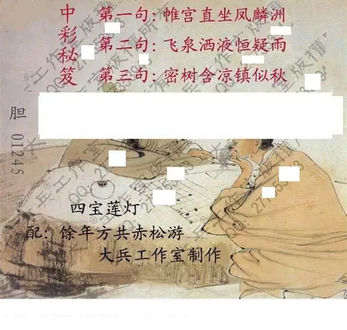 中彩秘笈
第一句：帷宫直坐凤麟洲
第二句：飞泉洒液恒疑雨
第三句：密树含凉镇似秋
胆 01245
四宝莲灯
配：馀年方共赤松游
大兵工作室制作